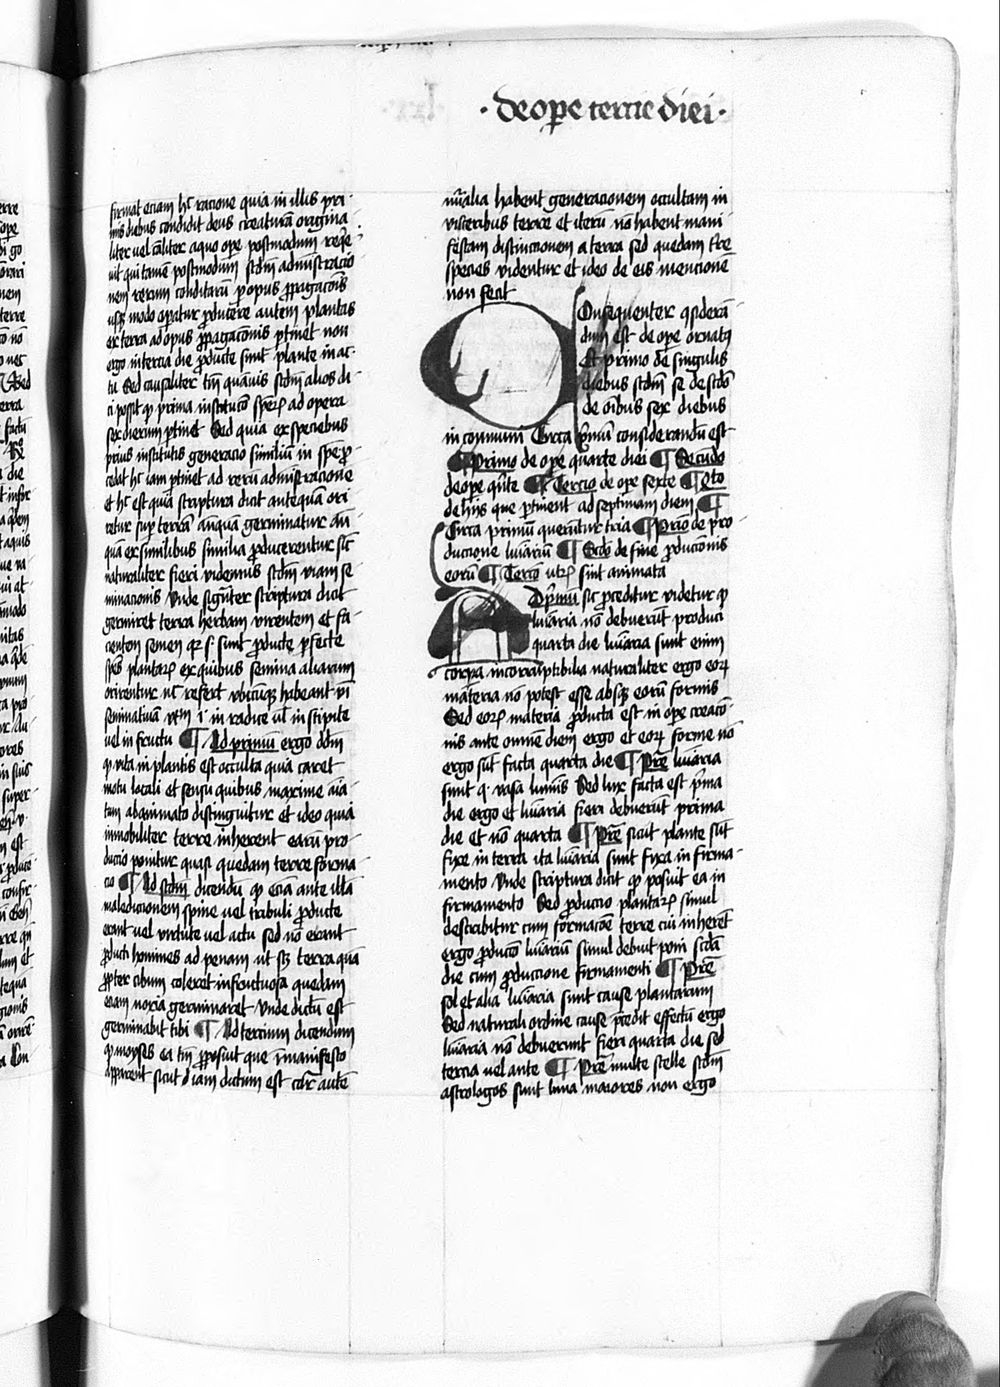 · de oꝑe tercie diei ·
firmat eciam hͨ racione quia in illis pri
mis diebus condidit deus creaturā origina
liter vel cāliter a quo oꝑe postmodum reqͥe
uit qui tamē postmodum scdm̄ administracio
nem rerum conditarū ꝑ opus ꝓpagacōis
usqꝫ modo oꝑatur ꝓducere autem plantas
ex terra ad opus ꝓpagacōnis ꝑtinet non
ergo in tercia die ꝓducte sunt plante in ac
tu Sed causaliter tm̄ quāuis scdm̄ alios di
ci possit qꝫ prima institucō speꝝ ad opera
sex dierum ꝑtinet Sed quia ex speciebus
prius institutis generacio similiū in spē ꝓ
cedat hͨ iam ꝑtinet ad rerū administracione
et hͨ est quā scriptura dicit antequā ori
retur suꝑ terrā antqua germinatur an̄
quā ex similibus similia ꝓducerentur sic̄
naturaliter fieri videmus scdm̄ viam se
minacionis Unde signāter scriptura dicit
germinet terra herbam virentem et fa
cientem semen qꝛ s. sunt ꝓducte ꝑfecte
spēs plantaꝝ ex quibus semina aliarum
orirentur nec refert ubicūqꝫ habeant vī
seminatiuā vtꝝ i. in radice ul̄ in stipite
vel in fructu ¶ Ad primū ergo dōm
qꝫ vita in plantis est occulta quia caret
motu locali et sensu quibus maxime aīa
tum ab inanimato distinguitur et ideo quia
inmobiliter terre inherent earū pro
ductio ponitur quasi quedam terre forma
cio ¶ Ad scdm̄ dicendū qꝫ eciā ante illā
maledictionem spine uel tribuli ꝓducte
erant uel virtute uel actu sed nō erant
ꝓducti homines ad penam ut sꝫ terra quā
ꝓpter cibum coleret infructuosa quedam
eciam noxia germinaret Unde dictū est
germinabit tibi ¶ Ad tercium dicendum
qꝫ moyses ea tm̄ ꝓposuit que ī manifesto
apparent sicut iam dictum est autē
mīalia habent generacionem occultam in
visceribus terre et iterū nō habent mani
festam distinctionem a terra sed quedam tr̄e
species videntur et ideo de eis mencionē
non fecit
COnsequenter ɔsiderā
dum est de oꝑe ornatꝰ
Et primo de singulis
diebus scdm̄ se de scdō
de oībus sex diebus
in comuni Circa pͥmū considerandū est
¶ Primo de oꝑe quarte diei ¶ Secūdo
de oꝑe qͥnte ¶ Tercio de oꝑe sexte ¶ Qͣto
de hijs que ꝑtinent ad septimam diem ¶
Circa primū querūtur tria ¶ Prīo de pro
ductione luīariū ¶ Scdō de fine ꝓductōnis
eorū ¶ Tercō utꝝ sint animata
AD pͥmū sic ꝓceditur videtur qꝫ
luīaria nō debuerūt produci
quarta die luīaria sunt enim
corꝑa incorruptibilia naturaliter ergo eoꝝ
materia nō potest esse absqꝫ eorū formis
Sed eoꝝ materia ꝓducta est in oꝑe creacō
nis ante omnē diem ergo et eoꝝ forme nō
ergo sūt facta quarta die ¶ Pret̄e luīaria
sunt q. vasa luminis Sed lux facta est pͥma
die ergo et luīaria fieri debuerūt prima
die et nō quarta ¶ Pret̄e sicut plante sūt
fixe in terra ita luīaria sunt fixa in firma
mento Unde scriptura dicit qꝫ posuit ea in
firmamento Sed ꝓductio plantaꝝ simul
describitur cum formacōe terre cui inherēt
ergo ꝓductō luīariū simul debuit poni scdā
die cum ꝓductione firmamenti ¶ Pret̄e
sol et alia luīaria sunt cause plantarum
Sed naturali ordine causa p̄cedit effectū ergo
luīaria nō debuerunt fieri quarta die sed
tercia uel ante ¶ Pret̄e multe stelle scdm̄
astrologos sunt luna maiores non ergo